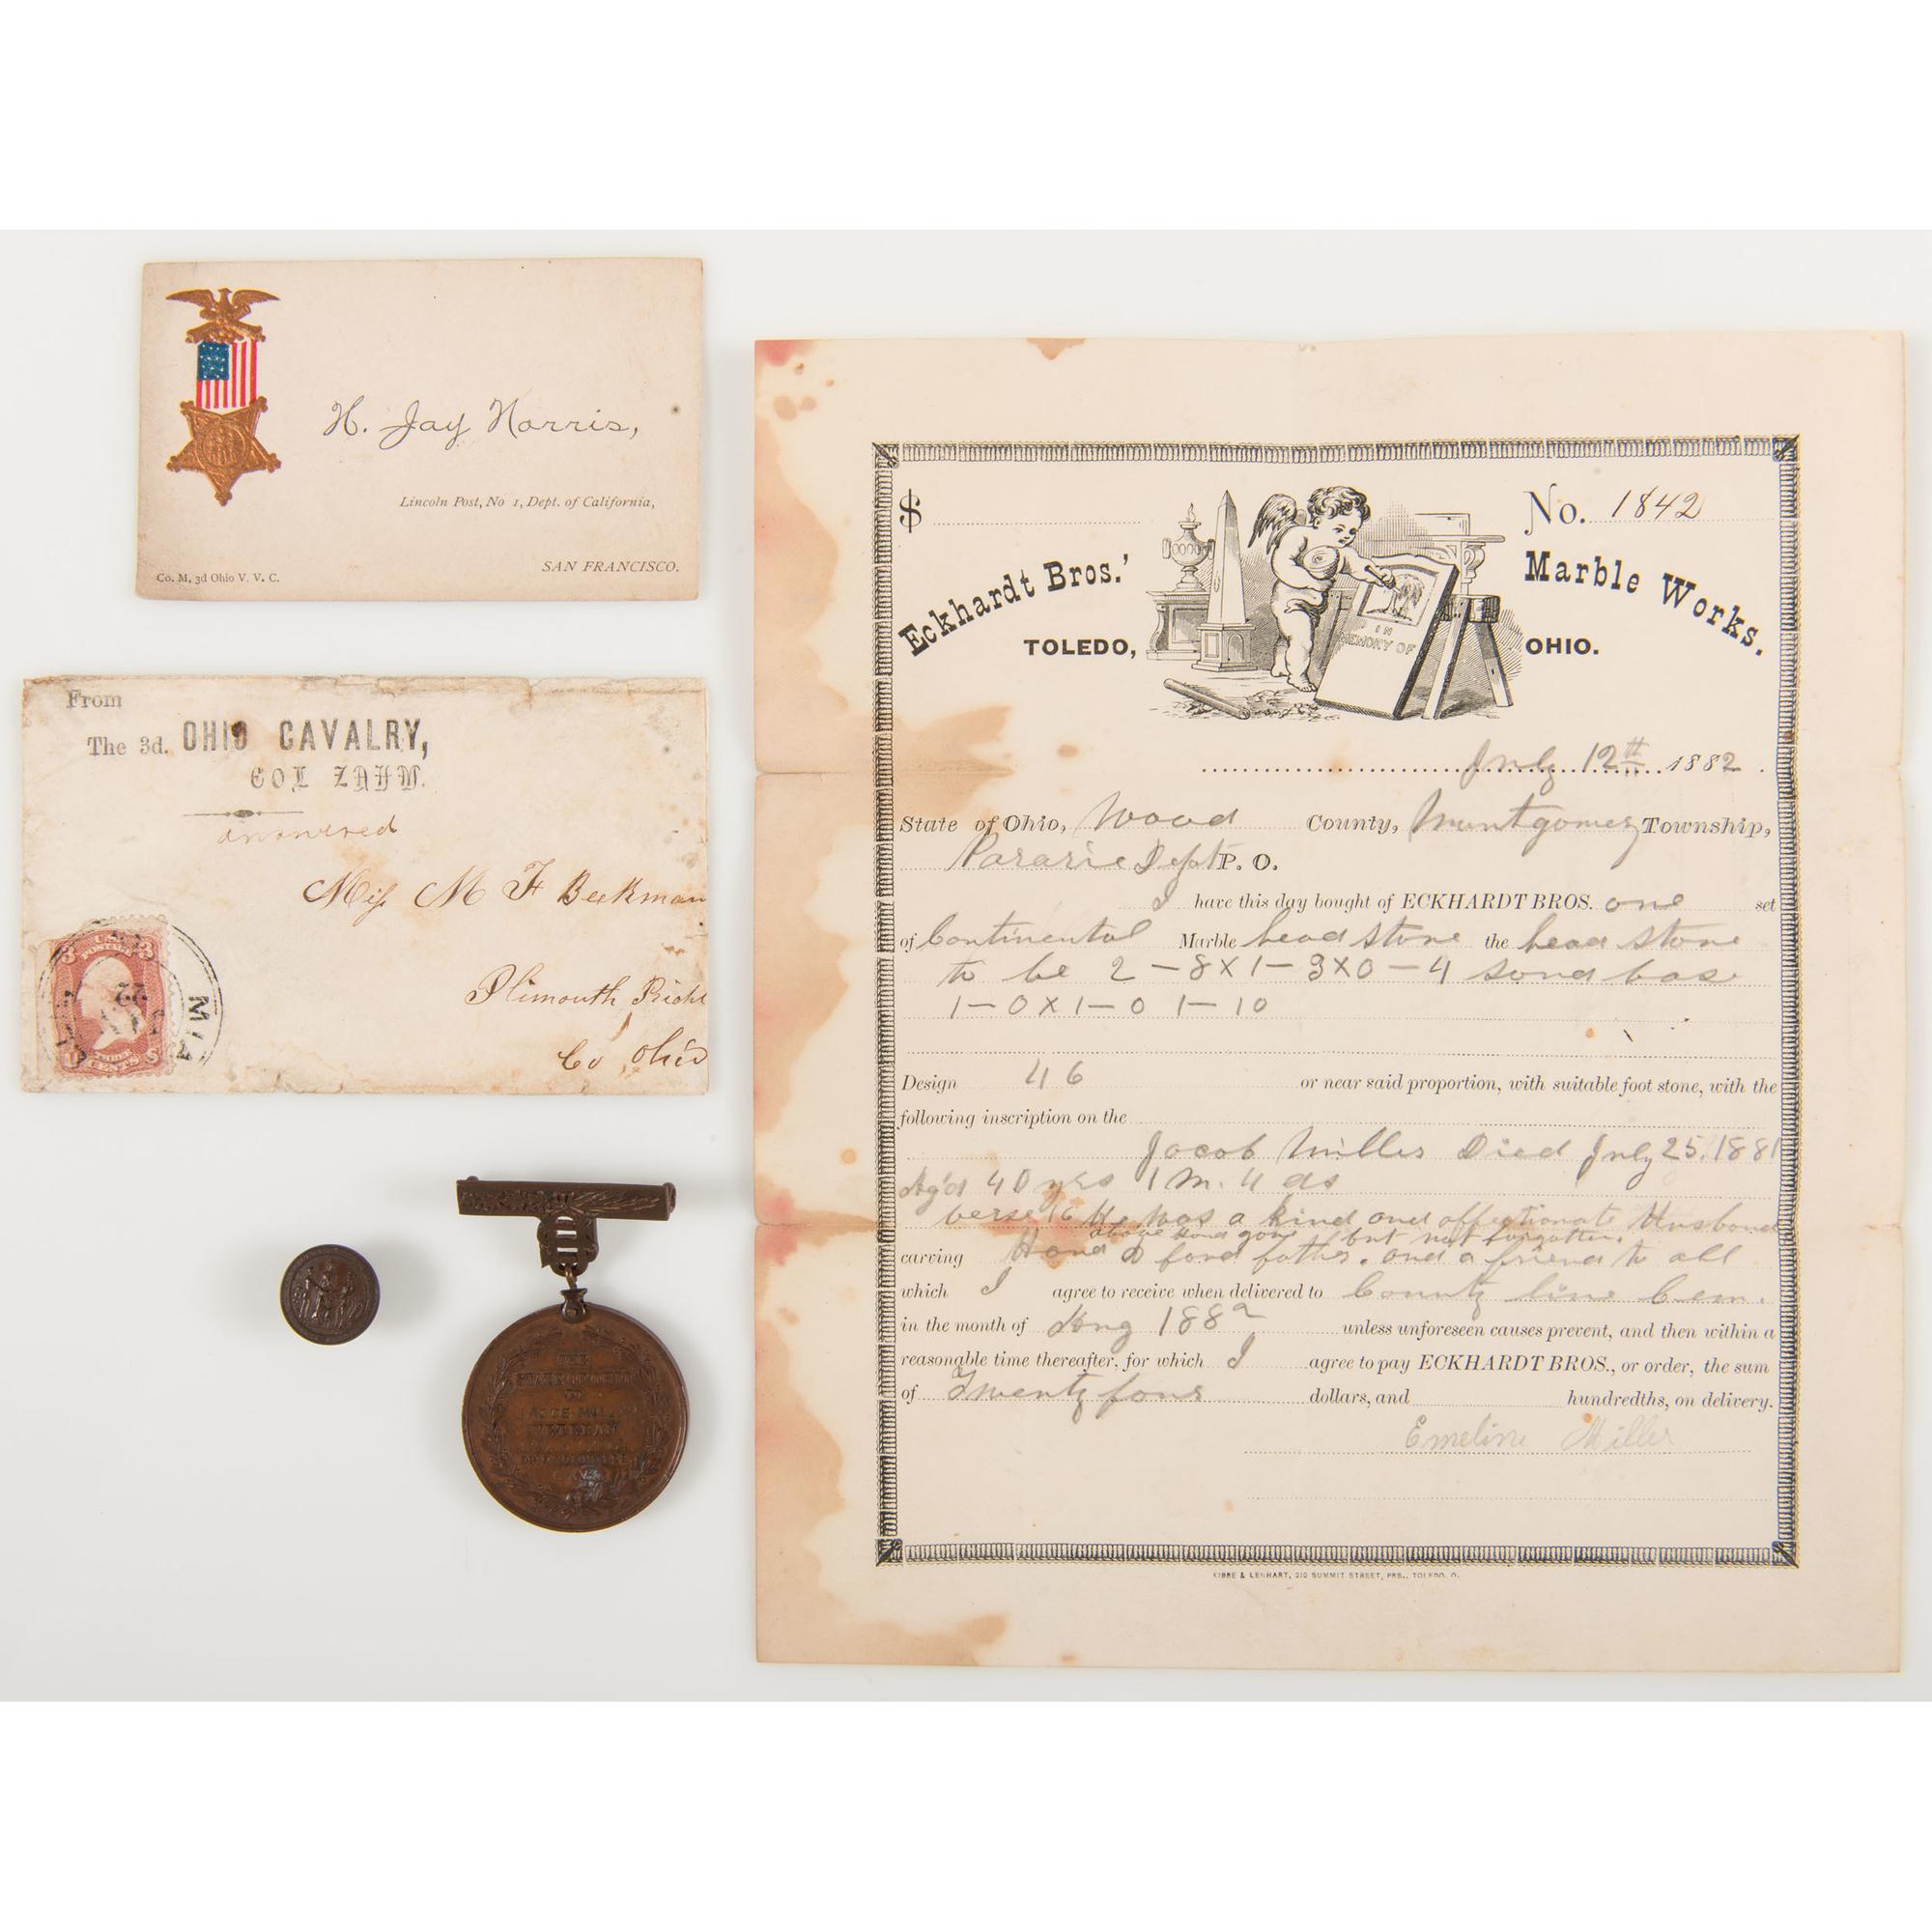 H. Jay Norris,
Lincoln Post, No 1, Dept. of California,
SAN FRANCISCO.
Co. M, 3d Ohio V. V. C.
From
The 3d. OHIO CAVALRY,
COL ZAHM.
answered
Miss M F Beekman
Plimouth Richl
Co Ohio
U.S. POSTAGE
3 3
THREE CENTS
U S
22
THE
STATE OF OHIO
TO
VETERAN
$ No. 1842
Eckhardt Bros.' Marble Works.
TOLEDO, OHIO.
IN
MEMORY OF
July 12th 1882.
State of Ohio, Wood County, Montgomery Township,
Pararie Dept P. O.
I have this day bought of ECKHARDT BROS. one set
of Continental Marble head stone the head stone
to be 2 - 8 x 1 - 3 x 0 - 4 sand base
1 - 0 x 1 - 0 1 - 10
Design 46 or near said proportion, with suitable foot stone, with the
following inscription on the
Jacob Miller Died July 25, 1881
Ag'd 40 yrs 1 m. 4 ds
verse 16 He was a kind and affectionate Husband
above Hand gone but not forgotten.
carving Hand a fond father. and a friend to all
which I agree to receive when delivered to County line Cem.
in the month of Aug 1882 unless unforeseen causes prevent, and then within a
reasonable time thereafter, for which I agree to pay ECKHARDT BROS., or order, the sum
of Twenty four dollars, and hundredths, on delivery.
Emeline Miller
KIBBE & LENHART, 210 SUMMIT STREET, PRS., TOLEDO, O.